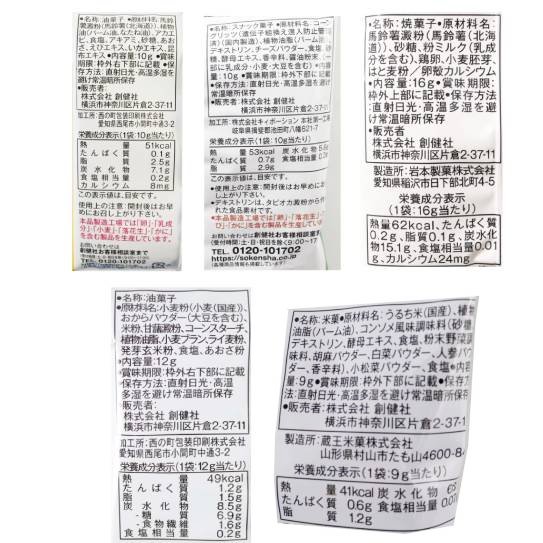 ●名称:油菓子 ●原材料名:馬鈴
薯澱粉(馬鈴薯(北海道))、植物
油脂(パーム油、なたね油)、アカエ
ビ、食塩、アオサミ、砂糖、あお
さ、えびエキス、いかエキス、昆
布エキス●内容量:10g●賞味期
限:枠外右下部に記載●保
存方法:直射日光・高温多湿を
避け常温暗所保存●販売者:
株式会社 創健社
横浜市神奈川区片倉2-37-11
加工所:西の町包装印刷株式会社
愛知県西尾市小間町中通3-2
栄養成分表示(1袋:10g当たり)
熱量 51kcal
たんぱく質 0.1g
脂質 2.5g
炭水化物 7.1g
食塩相当量 0.2g
カルシウム 8mg
この表示値は、目安です。
●使用上の注意:開封後はお早
めにお召し上がり下さい。
●本品製造工場では「卵」「乳成
分」「小麦」「落花生」「かに」
を含む製品を生産しています。
お問い合わせは
創健社お客様相談室まで
0120-101702
●名称:スナック菓子 ●原材料名:コーン
グリッツ(遺伝子組換え混入防止管理済)
(国内製造)、植物油脂(パーム油)、
デキストリン、チーズパウダー、食塩、砂
糖、酵母エキス、香辛料、醤油粉末
●内容量:
10g●賞味期限:枠外下部に記載
●保存方法:直射日光・高温多湿を
避け常温暗所保存
●販売者:株式会社 創健社
横浜市神奈川区片倉2-37-11
加工所:株式会社キィポーション 本社第一工場
岐阜県揖斐郡池田町八幡521-7
栄養成分表示(1袋:10g当たり)
熱量 53kcal 炭水化物
たんぱく質 0.7g 食塩相当量
脂質 2.9g
この表示値は、目安です。
●使用上の注意:開封後はお早めに
お召し上がり下さい。
●デキストリンは、タピオカ澱粉から作
られた食品素材です。
●本品製造工場では「卵」「落花生」「え
び」「かに」を含む製品を生産しています。
お問い合わせは創健社お客様相談室まで
(受付時間:土・日・祝日を除く9~17:00)
TEL 0120-101702
https://sokensha.co.jp
●名称:焼菓子●原材料名:
馬鈴薯澱粉(馬鈴薯(北海
道))、砂糖、粉ミルク(乳成
分を含む)、鶏卵、小麦胚芽、
はと麦粉/卵殻カルシウム
●内容量:16g●賞味期限:
枠外上部に記載●保存方
法:直射日光・高温多湿を避
け常温暗所保存
●販売者:
株式会社 創健社
横浜市神奈川区片倉2-37-11
製造所:岩本製菓株式会社
愛知県稲沢市日下部北町4-5
栄養成分表示
(1袋:16g当たり)
熱量62kcal、たんぱく質
0.2g、脂質0.1g、炭水化
物15.1g、食塩相当量0.01
g、カルシウム24mg
●名称:油菓子
●原材料名:小麦粉(小麦(国産))、
おからパウダー(大豆を含む)、
米粉、甘藷澱粉、コーンスターチ、
植物油脂、小麦ブラン、ライ麦粉、
発芽玄米粉、食塩、あおさ粉
●内容量:12g
●賞味期限:枠外右下部に記載
●保存方法:直射日光・高温
多湿を避け常温暗所保存
●販売者:
株式会社 創健社
横浜市神奈川区片倉2-37-11
加工所:西の町包装印刷株式会社
愛知県西尾市小間町中通3-2
栄養成分表示(1袋:12g当たり)
熱量 49kcal
たんぱく質 1.2g
脂質 1.5g
炭水化物 8.5g
-糖質 6.9g
-食物繊維 1.6g
食塩相当量 0.2g
●名称:米菓●原材料名:うるち米(国産)、植物
油脂(パーム油)、コンソメ風味調味料(砂糖、
デキストリン、酵母エキス、食塩、粉末野菜調
味料、胡麻パウダー、白菜パウダー、人参パウ
ダー、香辛料)、小松菜パウダー、食塩●内容
量:9g●賞味期限:枠外下部に記載●保存方
法:直射日光・高温多湿を避け常温暗所保存
●販売者:
株式会社 創健社
横浜市神奈川区片倉2-37-1
製造所:蔵王米菓株式会社
山形県村山市たも山4600-84
栄養成分表示(1袋:9g当たり)
熱量 41kcal 炭水化物
たんぱく質 0.6g 食塩相当量
脂質 1.2g